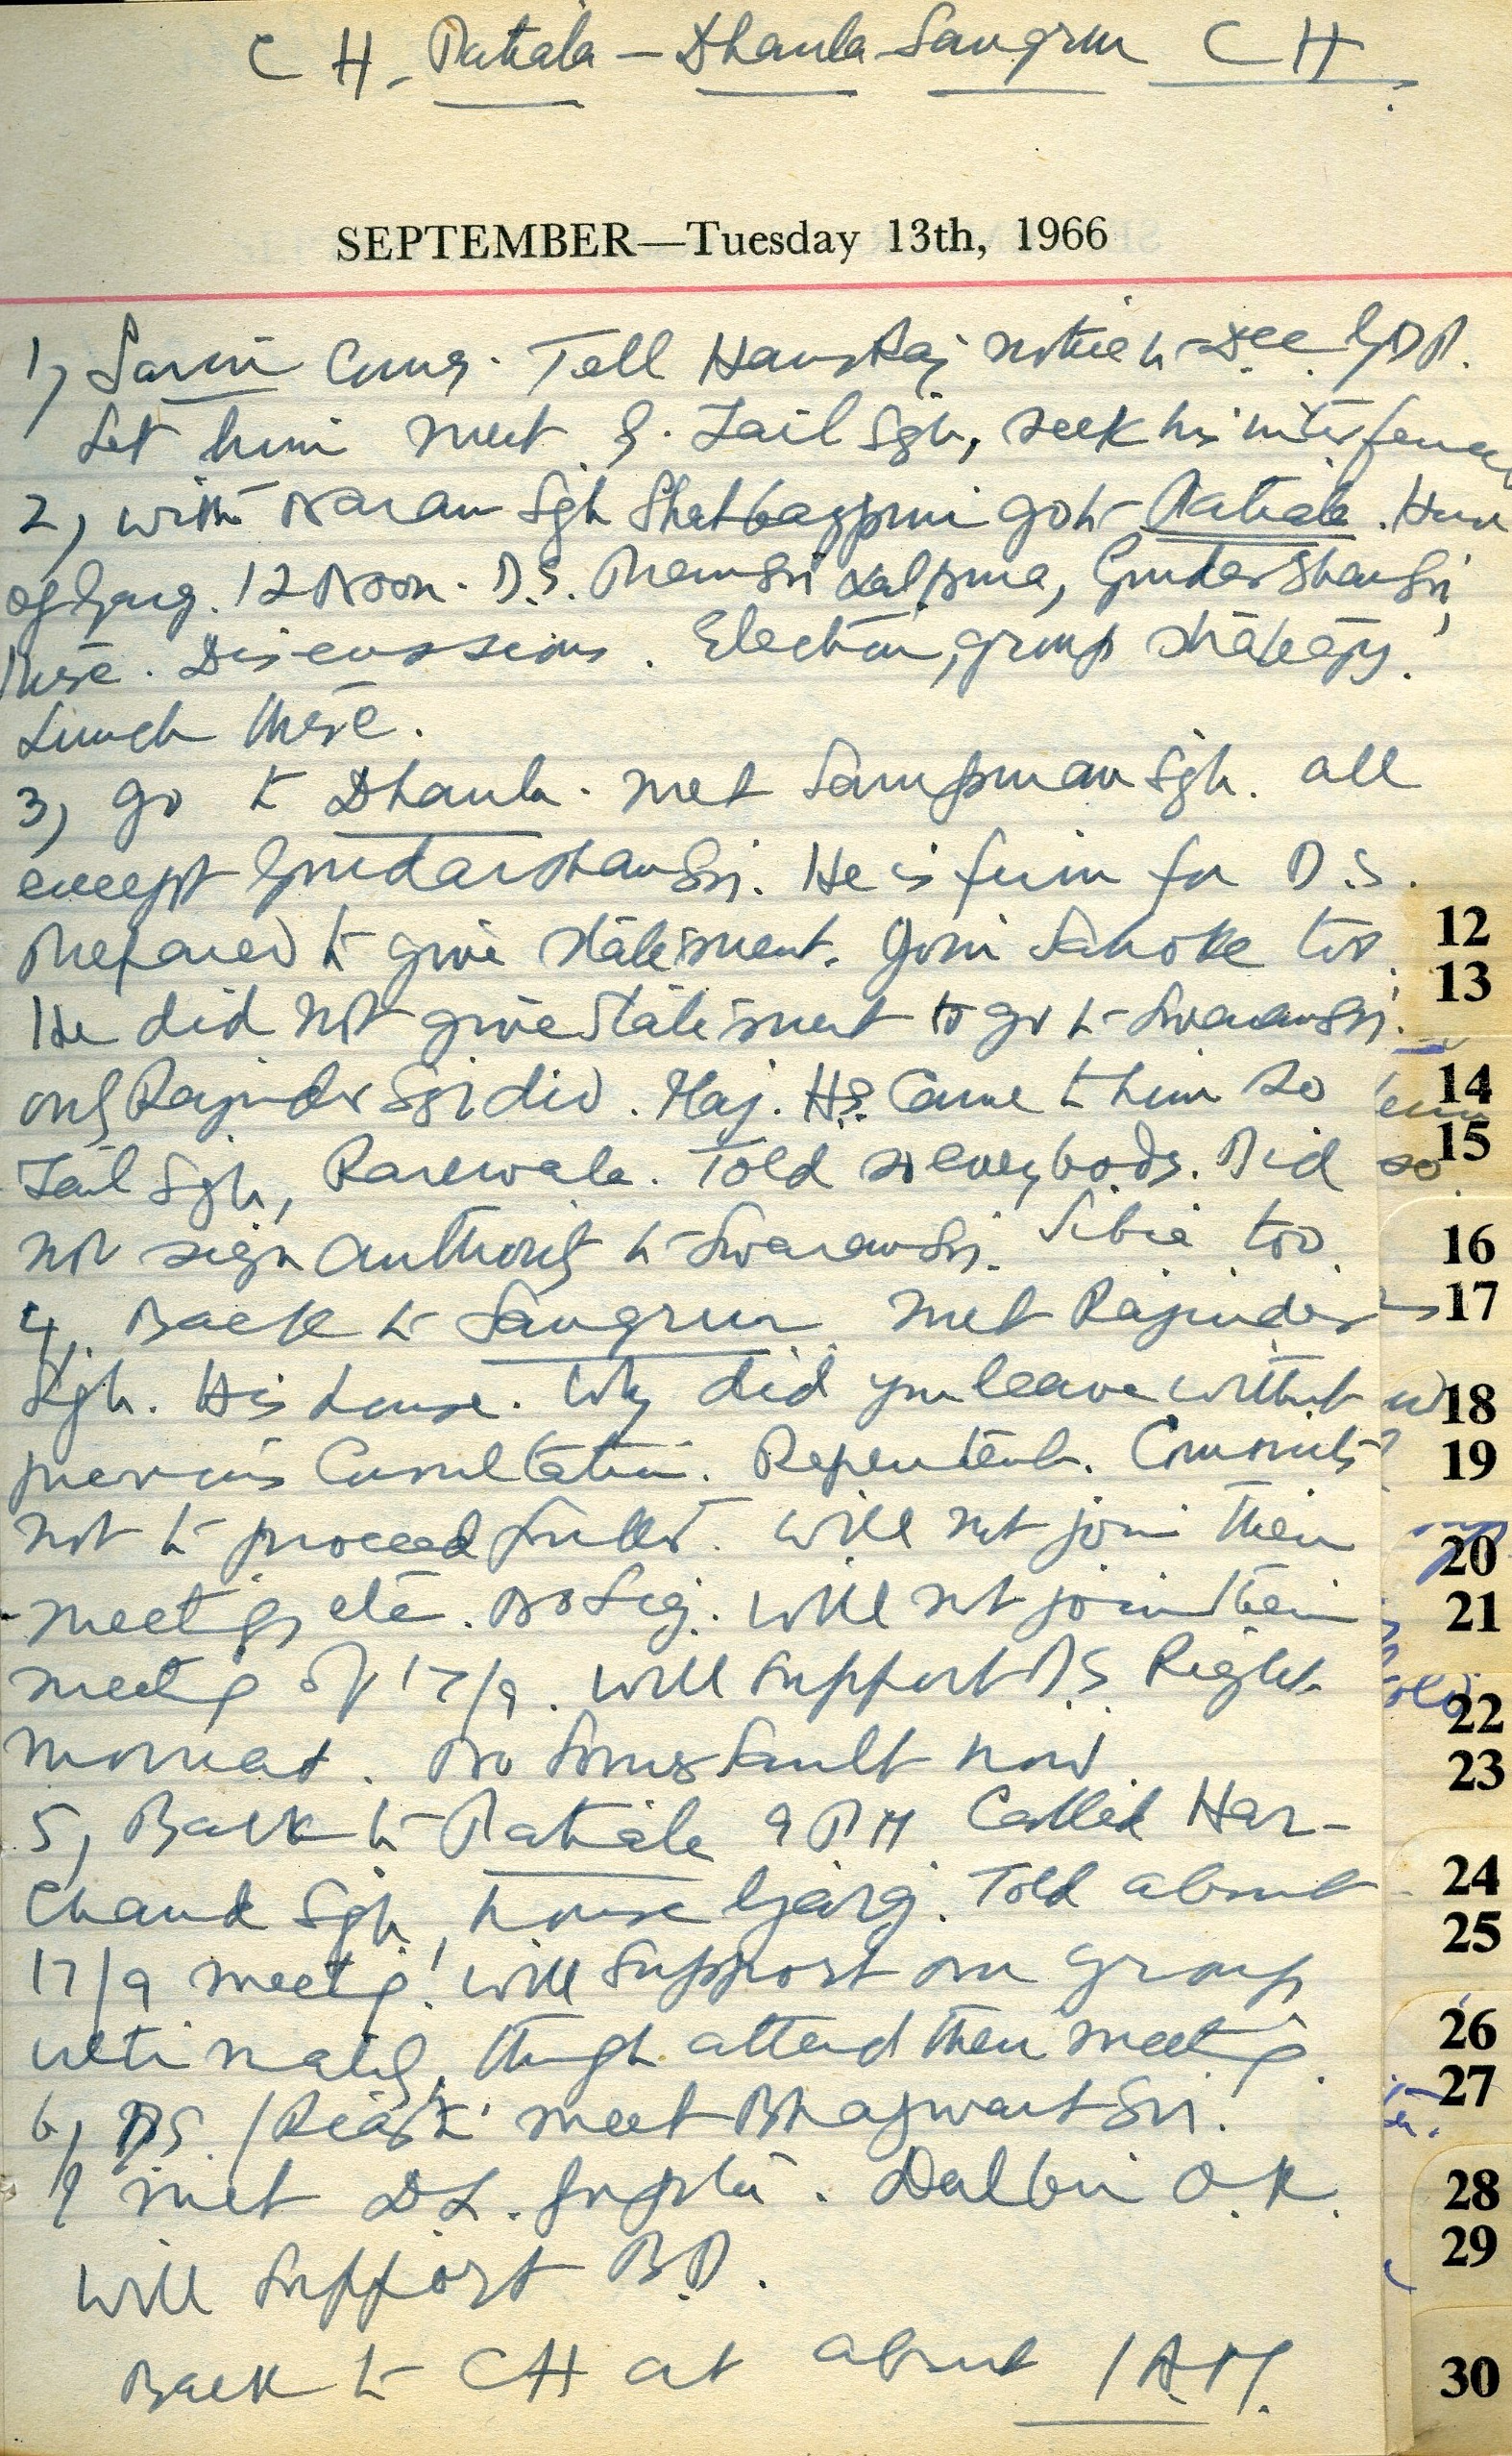 C H - Patiala - Dhaula - Sangrur C H
SEPTEMBER—Tuesday 13th, 1966
1, Sarin comes. Tell HansRaj not to see
Let him meet G. Zail Sgh, seek his interference
2, with Naran Sgh Shahbazpuri go to Patiala. House
of Garg. 12 Noon. D.S. PremSri Lalpura, GurdarshanSri,
there. Discussions. Election, group strategy.
Lunch there.
3, go to Dhaula. met Sampuran Sgh. all
except GurdarshanSri. He is firm for D.S.
Prepared to give statement. Join too.
He did not give statement to go to SwaranSri.
only Rajinder Sri did. Maj. HS. Came to him so
Zail Sgh, Rarewala. Told so everybody. Did
not sign authority to SwaranSri. Sibia too.
4, Back to Sangrur. met Rajinder
Sgh. His house. Why did you leave without
previous Consultation. Repentent. Commits
not to proceed further. will not join their
meetings etc. No Sig. will not join their
meeting of 17/9. will support D.S Right
moment. No now
5, Back to Patiala 9 PM Called Har-
Chand Sgh, house Garg. Told about
17/9 meeting. will Support our group
ultimately, though attend their meeting.
6, DS. meet Bhagwant Sri.
I met D L. Gupta. Dalbir O.K.
will support B.D.
Back to CH at about 1 A.M.
12
13
14
15
16
17
18
19
20
21
22
23
24
25
26
27
28
29
30